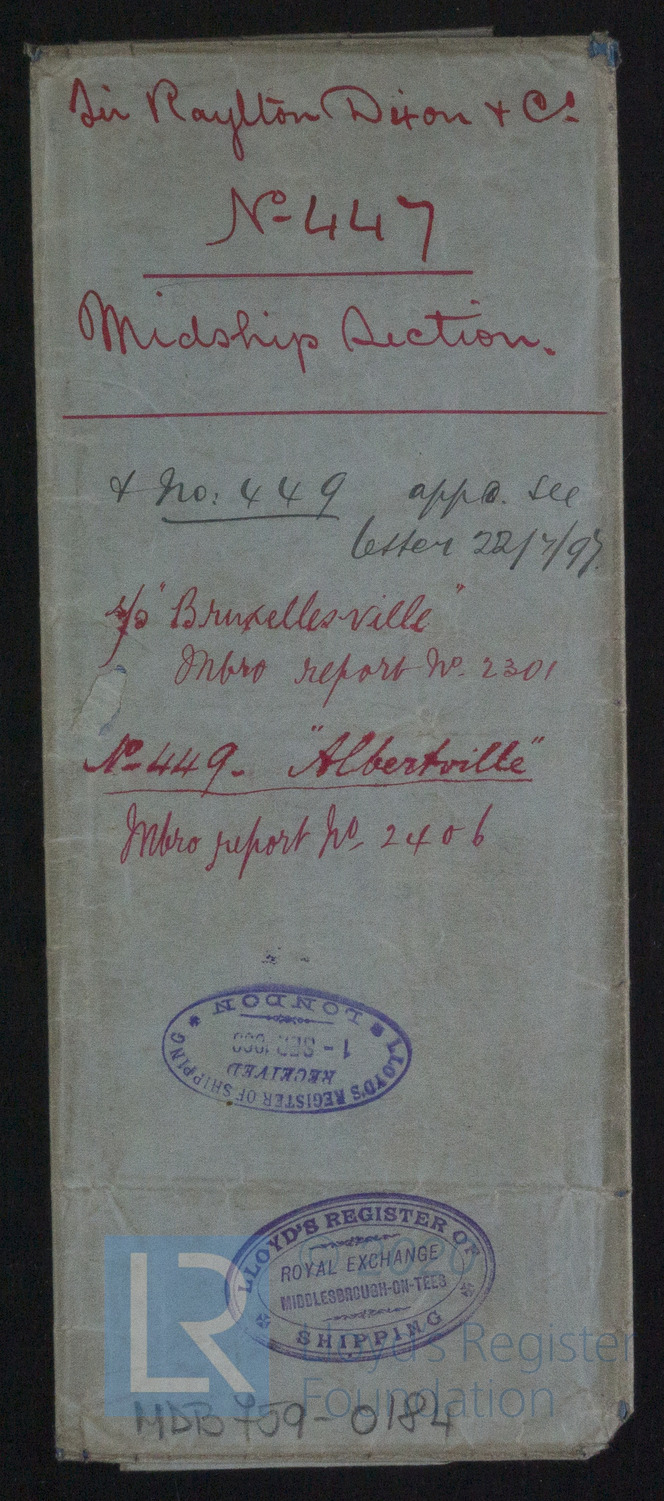 Sir Raylton Dixon & Co
No 447
Midship Section.
& No: 449 appd. see
letter 22/7/97.
s/s "Bruxellesville"
Mbro report No. 2301
No 449. "Albertville"
Mbro report No. 2406
LLOYD'S REGISTER OF SHIPPING
RECEIVED
1 - SEP
LONDON
LLOYD'S REGISTER OF
ROYAL EXCHANGE
MIDDLESBROUGH-ON-TEES
SHIPPING
© 2020
LR
Lloyd's Register
Foundation
MDB759-0184